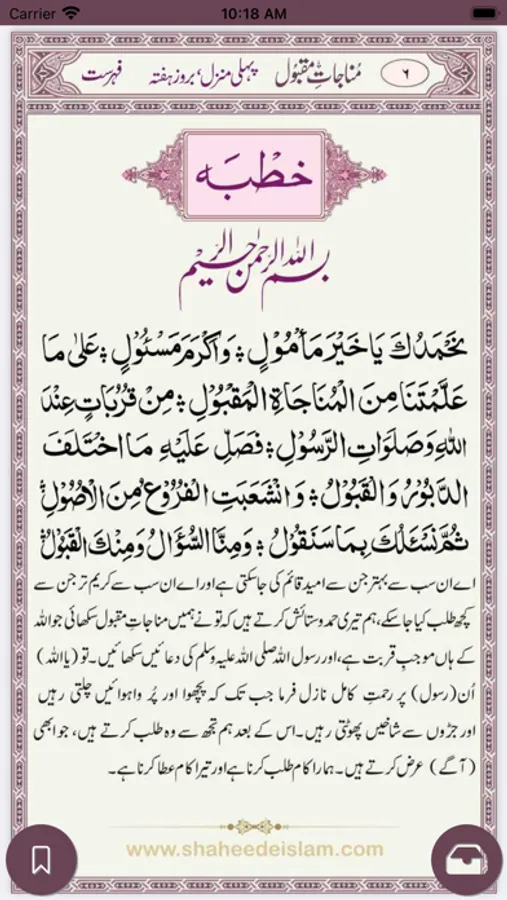 Carrier 10:18 AM
۶ مُناجاتِ مقبُول پہلی منزل، بروز ہفتہ فہرست
خطْبَہ
بِسْمِ اللهِ الرَّحْمٰنِ الرَّحِيْمِ
نَحْمَدُكَ يَا خَيْرَ مَأْمُوْلٍ ۞ وَاَكْرَمَ مَسْئُوْلٍ ۞ عَلٰى مَا
عَلَّمْتَنَا مِنَ الْمُنَاجَاةِ الْمَقْبُوْلِ ۞ مِنْ قُرُبَاتٍ عِنْدَ
اللهِ وَصَلَوَاتِ الرَّسُوْلِ ۞ فَصَلِّ عَلَيْهِ مَا اخْتَلَفَ
الدَّبُوْرُ وَالْقَبُوْلُ ۞ وَانْشَعَبَتِ الْفُرُوْعُ مِنَ الْاُصُوْلِ
ثُمَّ نَسْئَلُكَ بِمَا سَنَقُوْلُ ۞ وَمِنَّا السُّؤَالُ وَمِنْكَ الْقَبُوْلُ
اے ان سب سے بہتر جن سے امید قائم کی جاسکتی ہے اور اے ان سب سے کریم تر جن سے
کچھ طلب کیا جاسکے، ہم تیری حمد و ستائش کرتے ہیں کہ تو نے ہمیں مناجاتِ مقبول سکھائی جو اللہ
کے ہاں موجبِ قربت ہے، اور رسول اللہ صلی اللہ علیہ وسلم کی دعائیں سکھائیں۔ تو (یا اللہ)
اُن (رسول) پر رحمتِ کامل نازل فرما جب تک کہ پچھوا اور پُروا ہوائیں چلتی رہیں
اور جڑوں سے شاخیں پھوٹتی رہیں۔ اس کے بعد ہم تجھ سے وہ طلب کرتے ہیں، جو ابھی
(آگے) عرض کرتے ہیں۔ ہمارا کام طلب کرنا ہے اور تیرا کام عطا کرنا ہے۔
www.shaheedeislam.com